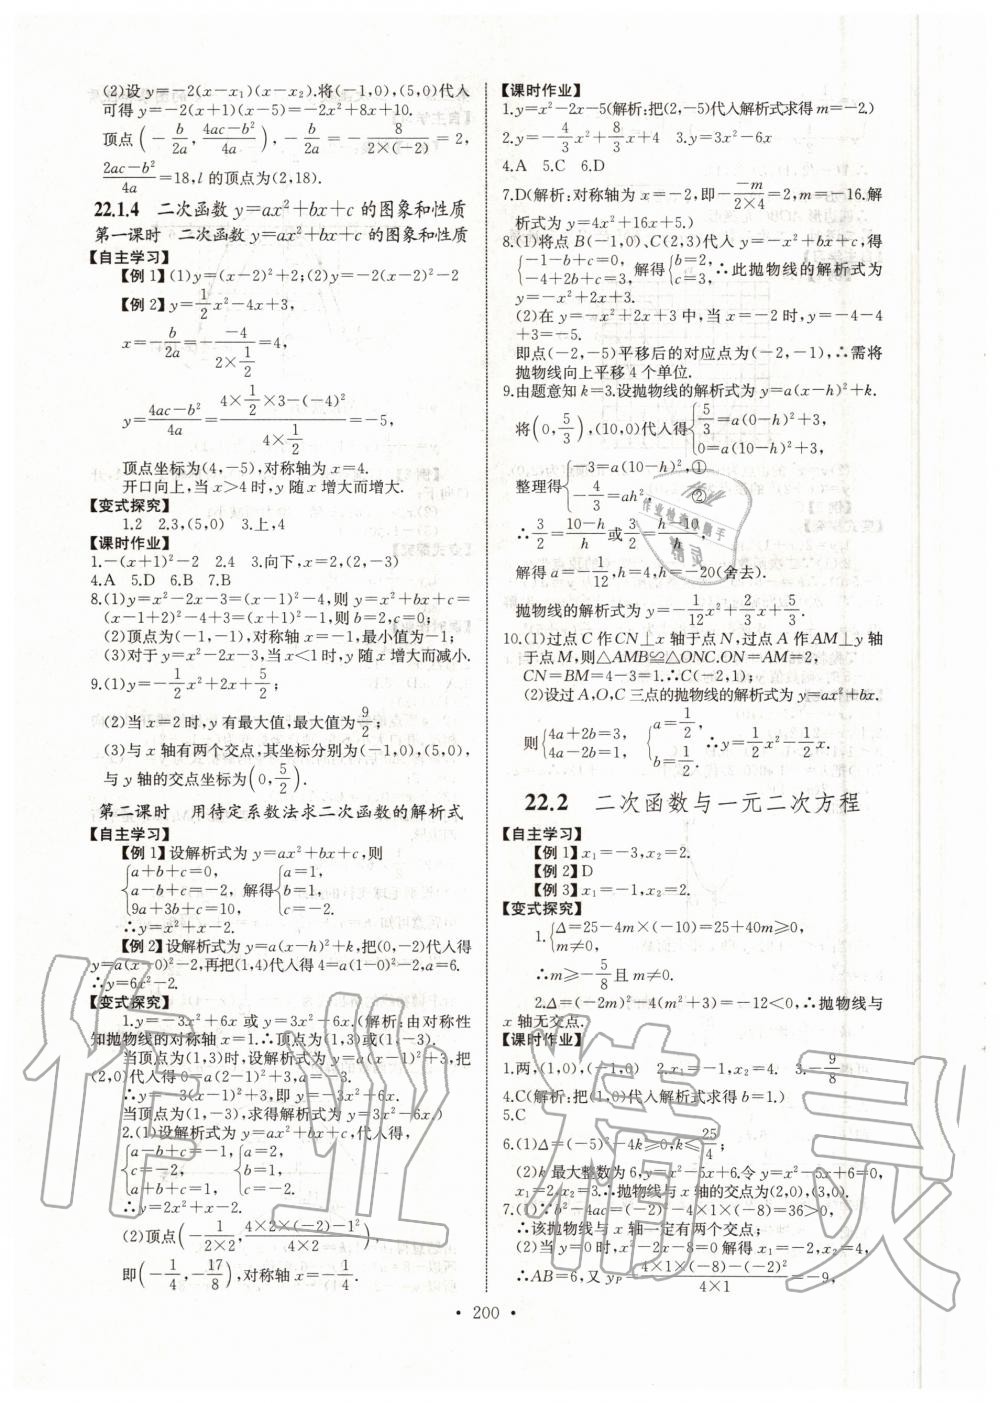 (2)设 y=-2(x-x₁)(x-x₂).将(-1,0),(5,0)代入
可得 y=-2(x+1)(x-5)=-2x²+8x+10.
顶点(-b/2a, (4ac-b²)/4a), -b/2a = -8/(2×(-2)) = 2,
(2ac-b²)/4a=18,l 的顶点为(2,18).
22.1.4 二次函数 y=ax²+bx+c 的图象和性质
第一课时 二次函数 y=ax²+bx+c 的图象和性质
【自主学习】
【例 1】(1)y=(x-2)²+2;(2)y=-2(x-2)²-2
【例 2】y=1/2x²-4x+3,
x=-b/2a=-(-4)/(2×1/2)=4,
y=(4ac-b²)/4a=(4×1/2×3-(-4)²)/(4×1/2)=-5,
顶点坐标为(4,-5),对称轴为 x=4.
开口向上,当 x>4 时,y 随 x 增大而增大.
【变式探究】
1.2 2.3,(5,0) 3.上,4
【课时作业】
1.-(x+1)²-2 2.4 3.向下,x=2,(2,-3)
4.A 5.D 6.B 7.B
8.(1)y=x²-2x-3=(x-1)²-4,则 y=x²+bx+c=
(x-1+2)²-4+3=(x+1)²-1,则b=2,c=0;
(2)顶点为(-1,-1),对称轴 x=-1,最小值为-1;
(3)对于 y=x²-2x-3,当 x<1 时,y 随 x 增大而减小.
9.(1)y=-1/2x²+2x+5/2;
(2)当 x=2 时,y 有最大值,最大值为9/2;
(3)与 x 轴有两个交点,其坐标分别为(-1,0),(5,0),
与 y 轴的交点坐标为(0,5/2).
第二课时 用待定系数法求二次函数的解析式
【自主学习】
【例 1】设解析式为 y=ax²+bx+c,则
{a+b+c=0, a-b+c=-2, 9a+3b+c=10, 解得{a=1, b=1, c=-2.
∴y=x²+x-2.
【例 2】设解析式为 y=a(x-h)²+k,把(0,-2)代入得
y=a(x-0)²-2,再把(1,4)代入得 4=a(1-0)²-2,a=6.
∴y=6x²-2.
【变式探究】
1.y=-3x²+6x 或 y=3x²-6x.(解析:由对称性
知抛物线的对称轴 x=1.∴顶点为(1,3)或(1,-3).
当顶点为(1,3)时,设解析式为 y=a(x-1)²+3,把
(2,0)代入得 0=a(2-1)²+3,a=-3.
∴y=-3(x-1)²+3,即 y=-3x²+6x.
当顶点为(1,-3),求得解析式为 y=3x²-6x.)
2.(1)设解析式为 y=ax²+bx+c,代入得,
{a-b+c=-1, c=-2, a+b+c=1, {a=2, b=1, c=-2.
∴y=2x²+x-2.
(2)顶点(-1/(2×2), (4×2×(-2)-1²)/(4×2)),
即(-1/4, -17/8),对称轴 x=-1/4.
【课时作业】
1.y=x²-2x-5(解析:把(2,-5)代入解析式求得 m=-2.)
2.y=-4/3x²+8/3x+4 3.y=3x²-6x
4.A 5.C 6.D
7.D(解析:对称轴为 x=-2,即-(-m)/(2×4)=2,m=-16.解
析式为 y=4x²+16x+5.)
8.(1)将点 B(-1,0)、C(2,3)代入 y=-x²+bx+c,得
{-1-b+c=0, -4+2b+c=3, 解得{b=2, c=3, ∴此抛物线的解析式为
y=-x²+2x+3.
(2)在 y=-x²+2x+3 中,当 x=-2 时,y=-4-4
+3=-5.
即点(-2,-5)平移后的对应点为(-2,-1),∴需将
抛物线向上平移 4 个单位.
9.由题意知 k=3.设抛物线的解析式为 y=a(x-h)²+k.
将(0,5/3),(10,0)代入得{5/3=a(0-h)²+3, 0=a(10-h)²+3,
整理得{-3=a(10-h)²,① -4/3=ah², ②
∴3/2=(10-h)/h或3/2=(h-10)/h,
解得 a=-1/12,h=4,h=-20(舍去).
抛物线的解析式为 y=-1/12x²+2/3x+5/3.
10.(1)过点 C 作 CN⊥x 轴于点 N,过点 A 作 AM⊥y 轴
于点 M,则△AMB≌△ONC.ON=AM=2,
CN=BM=4-3=1.∴C(-2,1);
(2)设过 A,O,C 三点的抛物线的解析式为 y=ax²+bx.
则{4a+2b=3, 4a-2b=1, {a=1/2, b=1/2. ∴y=1/2x²+1/2x.
22.2 二次函数与一元二次方程
【自主学习】
【例 1】x₁=-3,x₂=2.
【例 2】D
【例 3】x₁=-1,x₂=2.
【变式探究】
1.{Δ=25-4m×(-10)=25+40m≥0, m≠0,
∴m≥-5/8且 m≠0.
2.Δ=(-2m)²-4(m²+3)=-12<0,∴抛物线与
x 轴无交点.
【课时作业】
1.两,(1,0),(-1,0) 2.x₁=-1,x₂=4. 3.-9/8
4.C(解析:把(1,0)代入解析式求得 b=1.)
5.C
6.(1)Δ=(-5)²-4k≥0,k≤25/4;
(2)k 最大整数为 6,y=x²-5x+6.令 y=x²-5x+6=0,
x₁=2,x₂=3.∴抛物线与 x 轴的交点为(2,0),(3,0).
7.(1)∵b²-4ac=(-2)²-4×1×(-8)=36>0,
∴该抛物线与 x 轴一定有两个交点;
(2)当 y=0 时,x²-2x-8=0 解得 x₁=-2,x₂=4,
∴AB=6,又 yP=(4×1×(-8)-(-2)²)/(4×1)=-9,
• 200 •
作业精灵